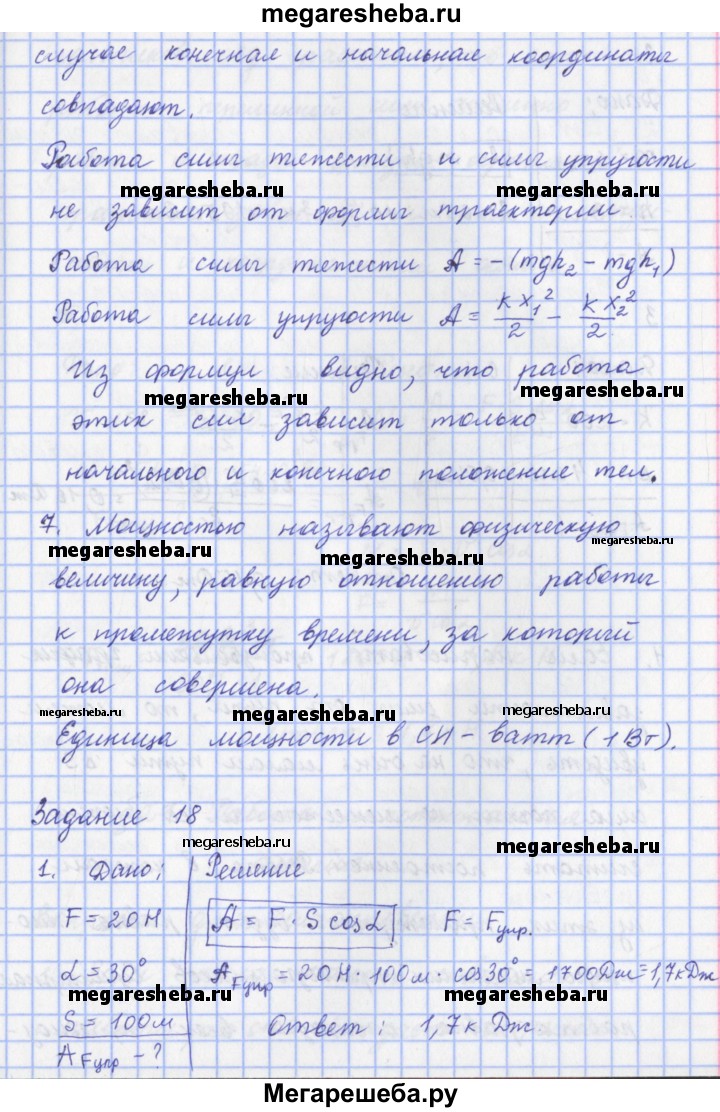 megaresheba.ru
случае конечная и начальная координаты
совпадают.
Работа силы тяжести и силы упругости
megaresheba.ru megaresheba.ru
не зависит от формы траектории.
Работа силы тяжести A = -(mgh₂ - mgh₁)
Работа силы упругости A = kx₁²/2 - kx₂²/2
Из формул видно, что работа
megaresheba.ru megaresheba.ru
этих сил зависит только от
начального и конечного положение тел.
7. Мощностью называют физическую
megaresheba.ru megaresheba.ru megaresheba.ru
величину, равную отношению работы
к промежутку времени, за который
она совершена.
megaresheba.ru megaresheba.ru megaresheba.ru
Единица мощности в СИ - ватт (1 Вт).
Задание 18
megaresheba.ru megaresheba.ru
1. Дано: Решение
F = 20 Н A = F · S cos α F = Fупр.
α = 30° AFупр = 20 Н · 100 м · cos 30° = 1700 Дж = 1,7 кДж
S = 100 м Ответ: 1,7 к Дж
AFупр - ?
Мегарешеба.ру